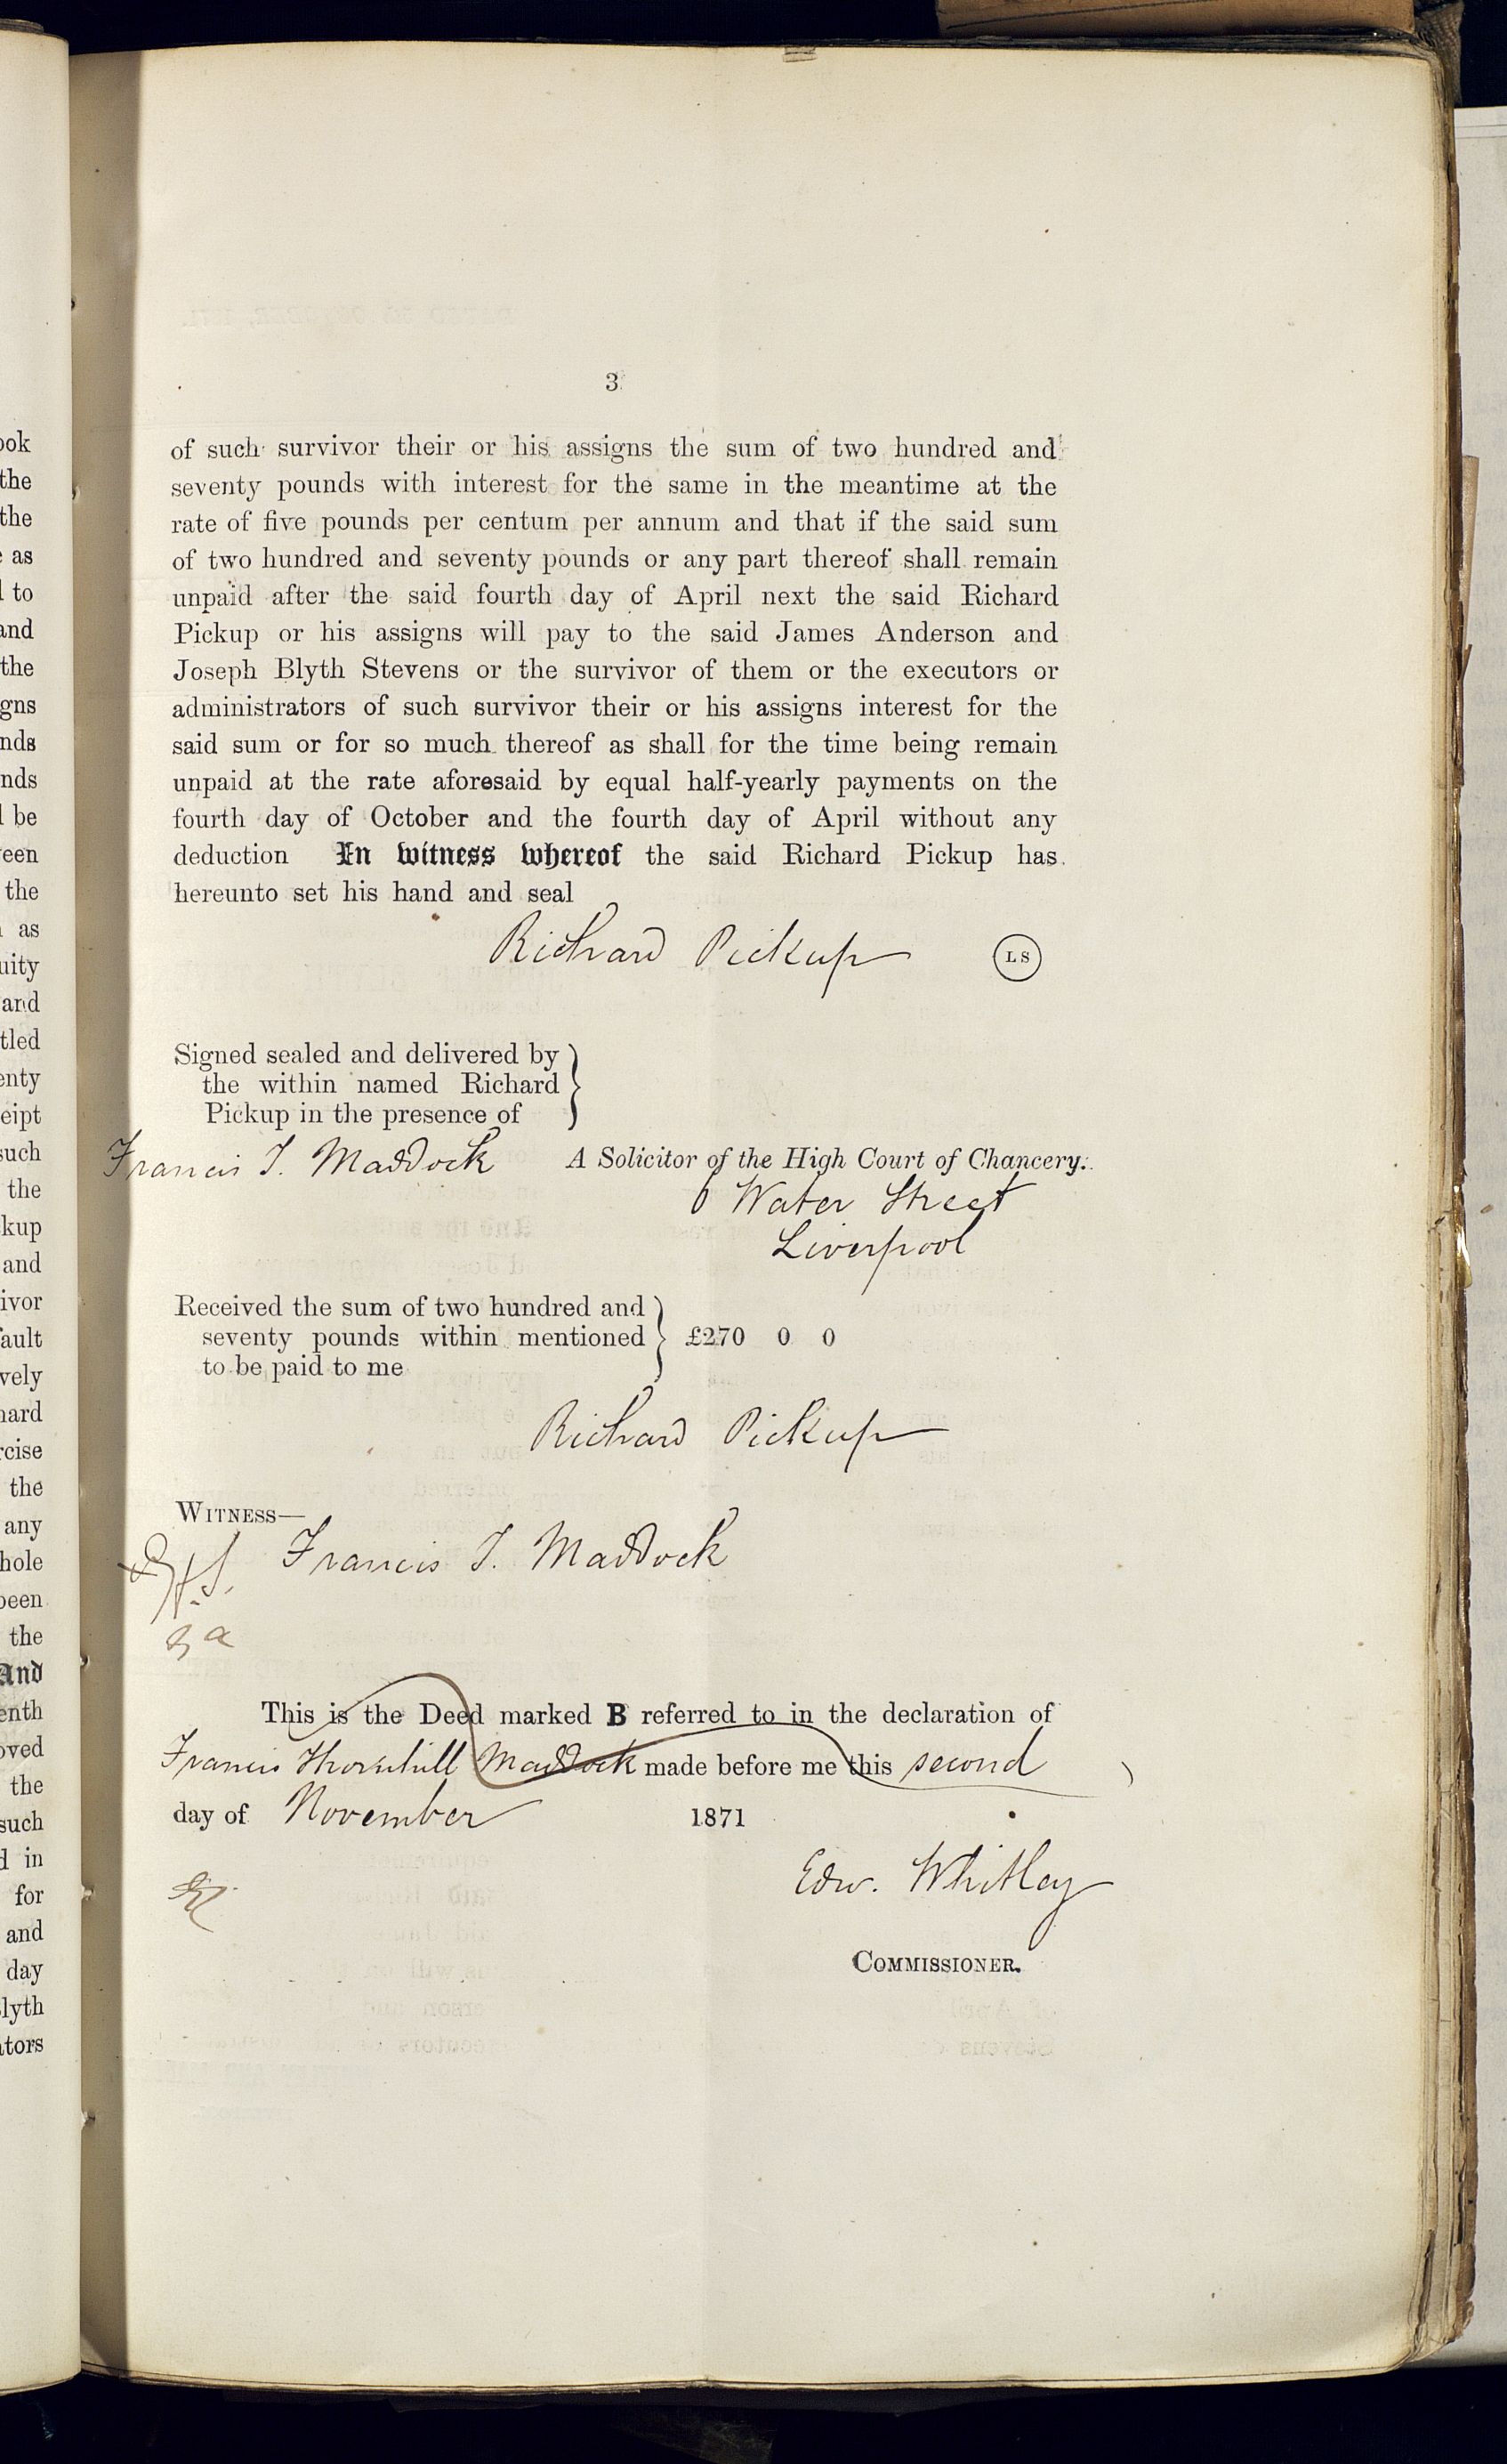 3
of such survivor their or his assigns the sum of two hundred and
seventy pounds with interest for the same in the meantime at the
rate of five pounds per centum per annum and that if the said sum
of two hundred and seventy pounds or any part thereof shall remain
unpaid after the said fourth day of April next the said Richard
Pickup or his assigns will pay to the said James Anderson and
Joseph Blyth Stevens or the survivor of them or the executors or
administrators of such survivor their or his assigns interest for the
said sum or for so much thereof as shall for the time being remain
unpaid at the rate aforesaid by equal half-yearly payments on the
fourth day of October and the fourth day of April without any
deduction In witness whereof the said Richard Pickup has
hereunto set his hand and seal
Richard Pickup LS
Signed sealed and delivered by
the within named Richard
Pickup in the presence of
Francis T. Maddock A Solicitor of the High Court of Chancery.
6 Water Street
Liverpool
Received the sum of two hundred and
seventy pounds within mentioned £270 0 0
to be paid to me
Richard Pickup
WITNESS—
Francis T. Maddock
This is the Deed marked B referred to in the declaration of
Francis Thornhill Maddock made before me this second
day of November 1871
Edw. Whitley
COMMISSIONER.
ook
the
the
as
to
and
the
gns
nds
nds
be
een
the
as
uity
and
tled
enty
eipt
such
the
kup
and
ivor
fault
vely
hard
rcise
the
any
hole
been
the
And
enth
oved
the
such
d in
for
and
day
lyth
ators